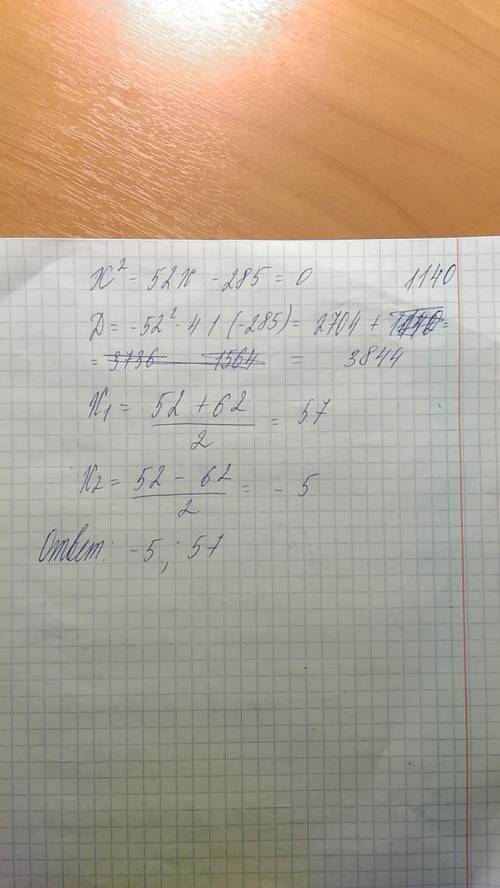 x² - 52x - 285 = 0 1140
Д = -52² - 4 1 (-285) = 2704 + 1140 =
= 3736 1564 = 3844
x₁ = 52 + 62 / 2 = 57
x₂ = 52 - 62 / 2 = - 5
Ответ: -5; 57